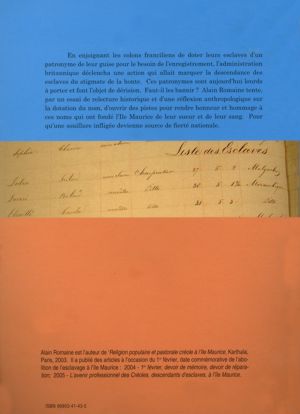 En enjoignant les colons franciliens de doter leurs esclaves d'un
patronyme de leur guise pour le besoin de l'enregistrement, l'administration
britannique déclencha une action qui allait marquer la descendance des
esclaves du stigmate de la honte. Ces patronymes sont aujourd'hui lourds
à porter et font l'objet de dérision. Faut-il les bannir ? Alain Romaine tente,
par un essai de relecture historique et d'une réflexion anthropologique sur
la dotation du nom, d'ouvrir des pistes pour rendre honneur et hommage à
ces noms qui ont fondé l'Ile Maurice de leur sueur et de leur sang. Pour
qu'une souillure infligée devienne source de fierté nationale.
Liste des Esclaves
Alain Romaine est l'auteur de 'Religion populaire et pastorale créole à l'île Maurice, Karthala,
Paris, 2003. Il a publié des articles à l'occasion du 1er février, date commémorative de l'abo-
lition de l'esclavage à l'île Maurice : 2004 - 1er février, devoir de mémoire, devoir de répara-
tion; 2005 - L'avenir professionnel des Créoles, descendants d'esclaves, à l'île Maurice.